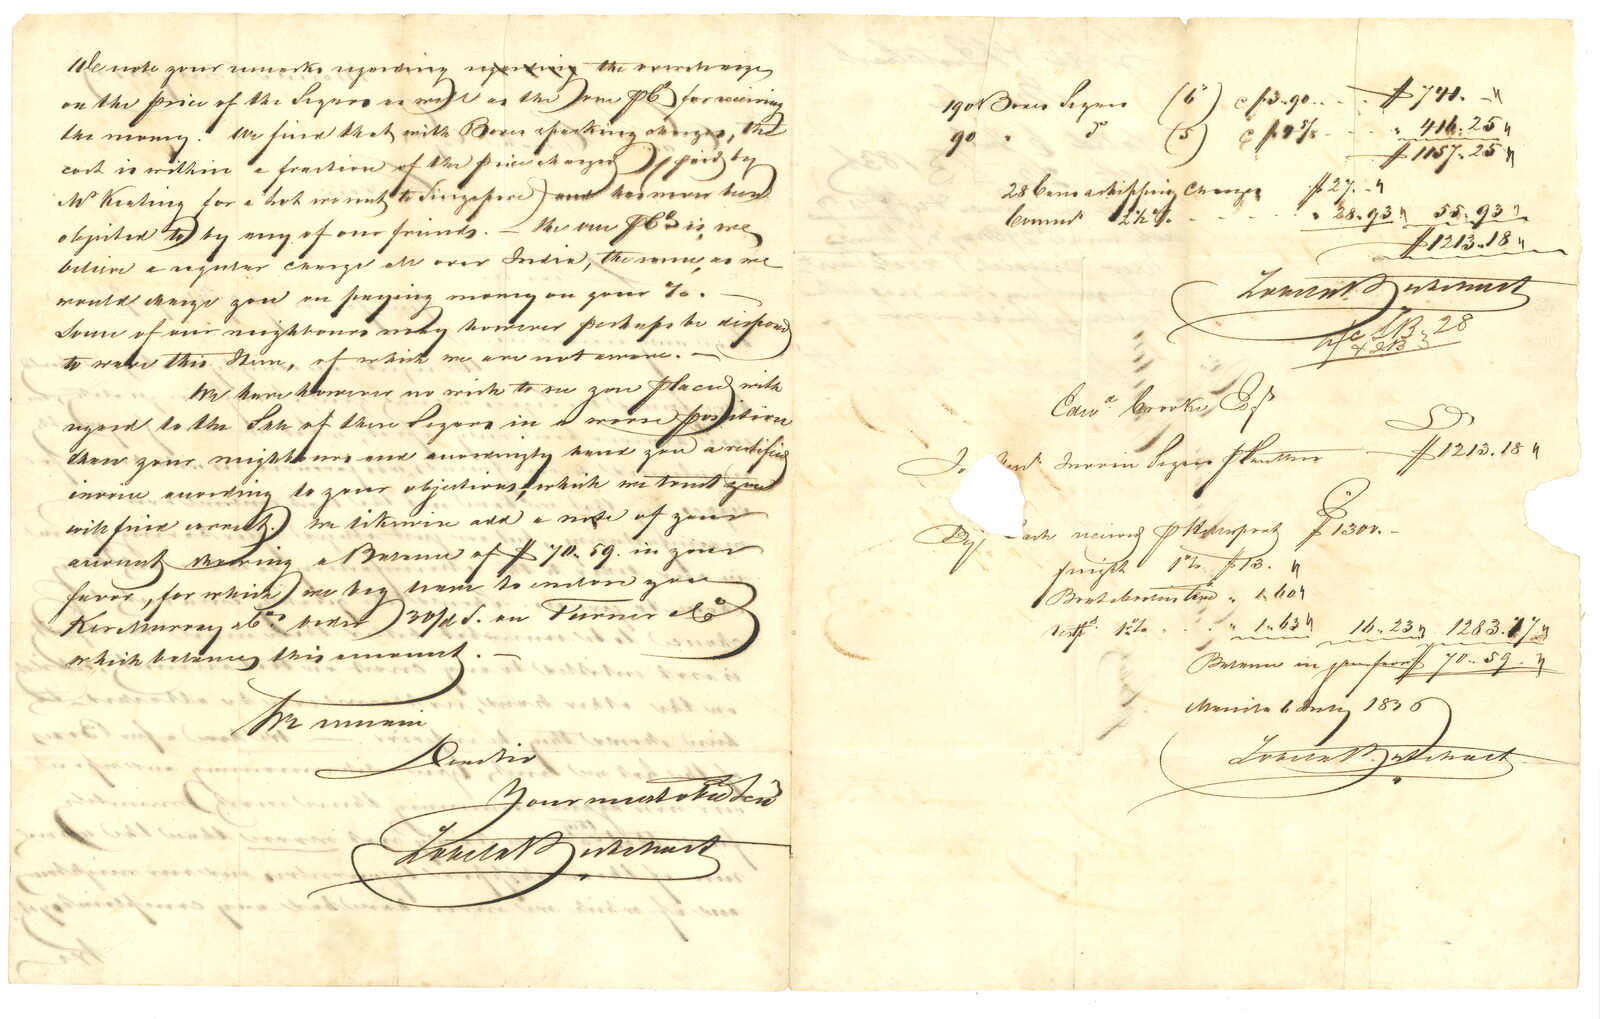 We note your remarks regarding regarding the overcharge
on the price of the Segars as well as the one pCt for receiving
the money. We find that with Boxes & packing charges, the
cost is within a fraction of the price charged (paid by
Mr Keating for a lot we sent to Singapore) and has never been
objected to by any of our friends. — The one pCt is, we
believe a regular charge all over India, the same, as we
would charge you on paying money on your a/c. —
Some of our neighbours may however perhaps be disposed
to wave this Item, of which we are not aware. —
We have however no wish to see you placed with
regard to the Sale of these Segars in a worse position
than your neighbours and accordingly hand you a rectified
invoice according to your objections, which we trust you
will find correct. We likewise add a note of your
account shewing a Balance of $ 70.59. in your
favor, for which we beg leave to enclose you
Ker Murray & Co. order 30/d S. on Turner & Co
which balances this account. —
We remain
Dear Sir
Your most obedt Servts
190 Boxes Segars (6a) @ $3.90 .. . . $ 741. - "
90 " do (5) @ $4 5/8 - . . " 416.25 "
$ 1157.25 "
28 Cases & shipping charges $ 27. - "
Commn 2 1/2 % . - - - - - " 28.93 " 55.93 "
$ 1213.18 "
28
Edwd. Crooke Esqr
Dr
To Segars $ 1213.18 "
Cr
By Cash received p $ 1300. -
freight 1 % $ 13. "
" 1.60 "
1 % . . . " 1.63 " 16.23 " 1283.77 "
Balance in your favor $ 70.59. "
Manila 6 July 1836